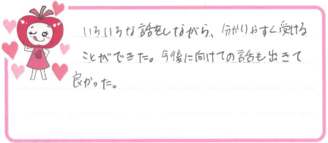 いろいろな話をしながら、分かりやすく受ける
ことができた。今後に向けての話も出きて
良かった。